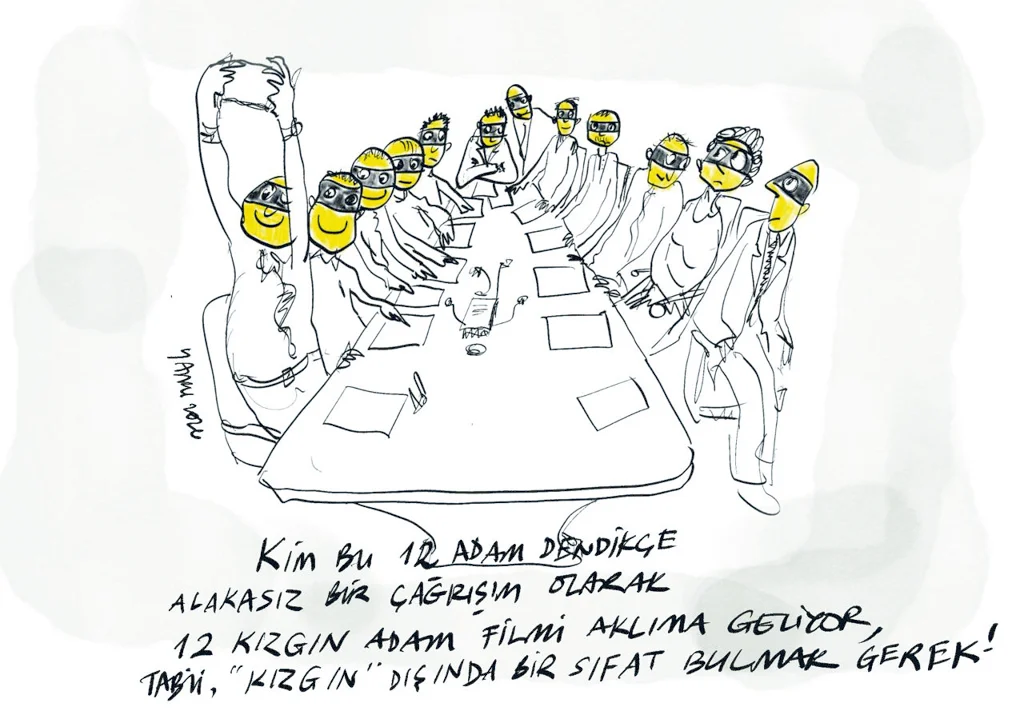 YANKI 2020
KİM BU 12 ADAM DENDİKÇE
ALAKASIZ BİR ÇAĞRIŞIM OLARAK
12 KIZGIN ADAM FİLMİ AKLIMA GELİYOR,
TABİİ, "KIZGIN" DIŞINDA BİR SIFAT BULMAK GEREK!